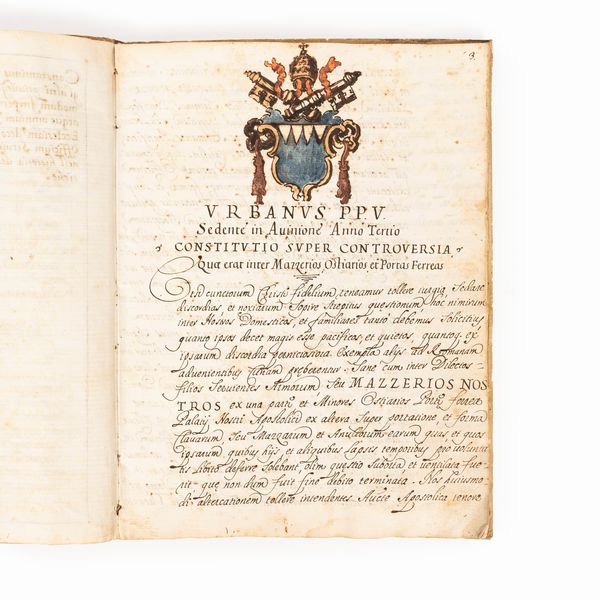 3
VRBANVS PP V.
Sedente in Auinione Anno Tertio
CONSTITVTIO SVPER CONTROVERSIA
Quæ erat inter Mazzerios Ostiarios et Portas Ferreas
cunctorum Christi fidelium, teneamur tollere iurgia Sedare
discordias, et noxiarum Sopire Strepitus questionum hoc nimirum
inter Nostros Domesticos, et familiares tanto debemus Solicitius
quanto ipsos decet magis esse pacificos, et quietos, quantoq. ex
ipsorum discordia perniciosiora Exempla alijs ad Romanam
aduenientibus Curiam preberentur. Sane cum inter Dilectos
filios Seruientes Armorum Seu MAZZERIOS NOS
TROS ex una parte et Minores Ostiarios Porte ferree
Palatij Nostri Apostolici ex altera Super portatione, et forma
Clauarum Seu Mazzarum et Annulorum earum quas et quos
ipsarum quibus hys, et aliquibus lapsis temporibus pro volunta
tis libito deferre solebant, olim questio suborta et ventilata fue
rit que non dum fuit fine debito terminata. Nos huiusmo
di altercationem tollere intendentes Aucte Apostolica tenore